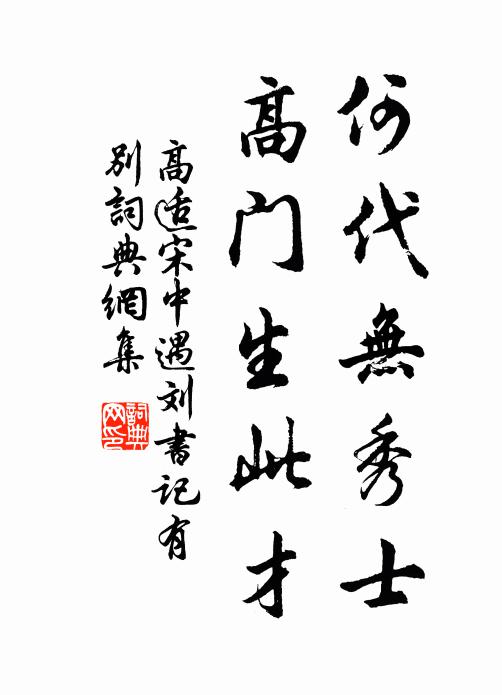 何代無秀士
高门生此才
高适宋中遇刘書记有
别詞典網集
詞典网印